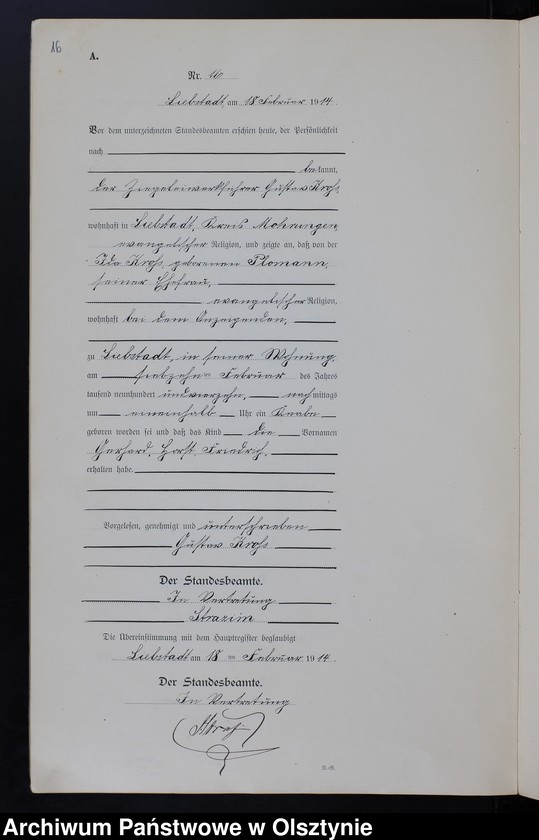 16
A.
Nr. 16
Liebstadt, am 18 Februar 1914.
Vor dem unterzeichneten Standesbeamten erschien heute, der Persönlichkeit
nach
bekannt,
der Ziegeleiwerkführer Gustav Kroß,
wohnhaft in Liebstadt, Kreis Mohrungen
evangelischer Religion, und zeigte an, daß von der
Ida Kroß, geborenen Plomann,
seiner Ehefrau,
evangelischer Religion,
wohnhaft bei dem Anzeigenden,
zu Liebstadt, in seiner Wohnung,
am siebzehn ten Februar des Jahres
tausend neunhundert undvierzehn, nachmittags
um eineinhalb Uhr ein Knabe
geboren worden sei und daß das Kind die Vornamen
Gerhard, Horst, Friedrich,
erhalten habe.
Vorgelesen, genehmigt und unterschrieben
Gustav Kroß
Der Standesbeamte.
In Vertretung
Strazim
Die Übereinstimmung mit dem Hauptregister beglaubigt
Liebstadt am 18 ten Februar 1914.
Der Standesbeamte.
In Vertretung
Archiwum Państwowe w Olsztynie